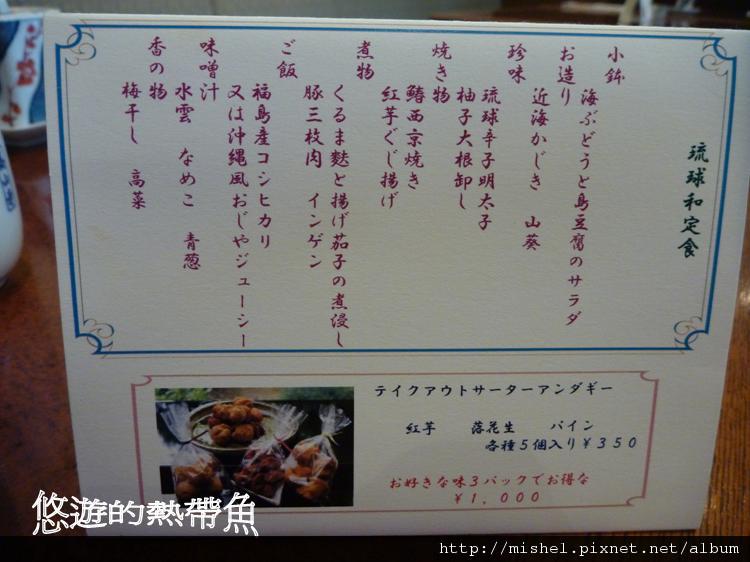 琉球和定食
小鉢
海ぶどうと島豆腐のサラダ
お造り
近海かじき 山葵
珍味
琉球辛子明太子
柚子大根卸し
焼き物
鰆西京焼き
紅芋ぐじ揚げ
煮物
くるま麩と揚げ茄子の煮浸し
豚三枚肉 インゲン
ご飯
福島産コシヒカリ
又は沖縄風おじやジューシー
味噌汁
水雲 なめこ 青葱
香の物
梅干し 高菜
テイクアウトサーターアンダギー
紅芋 落花生 パイン
各種5個入り¥350
お好きな味3パックでお得な
¥1,000
悠遊的熱帶魚
http://mishel.pixnet.net/album